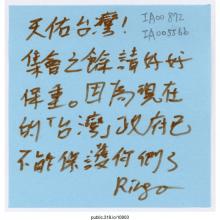 天佑台灣！
IA00892
IA005566
集會之餘請好好
保重。因為現在
的「台灣」政府已
不能保護你們了
Ringo
public.318.io/10003